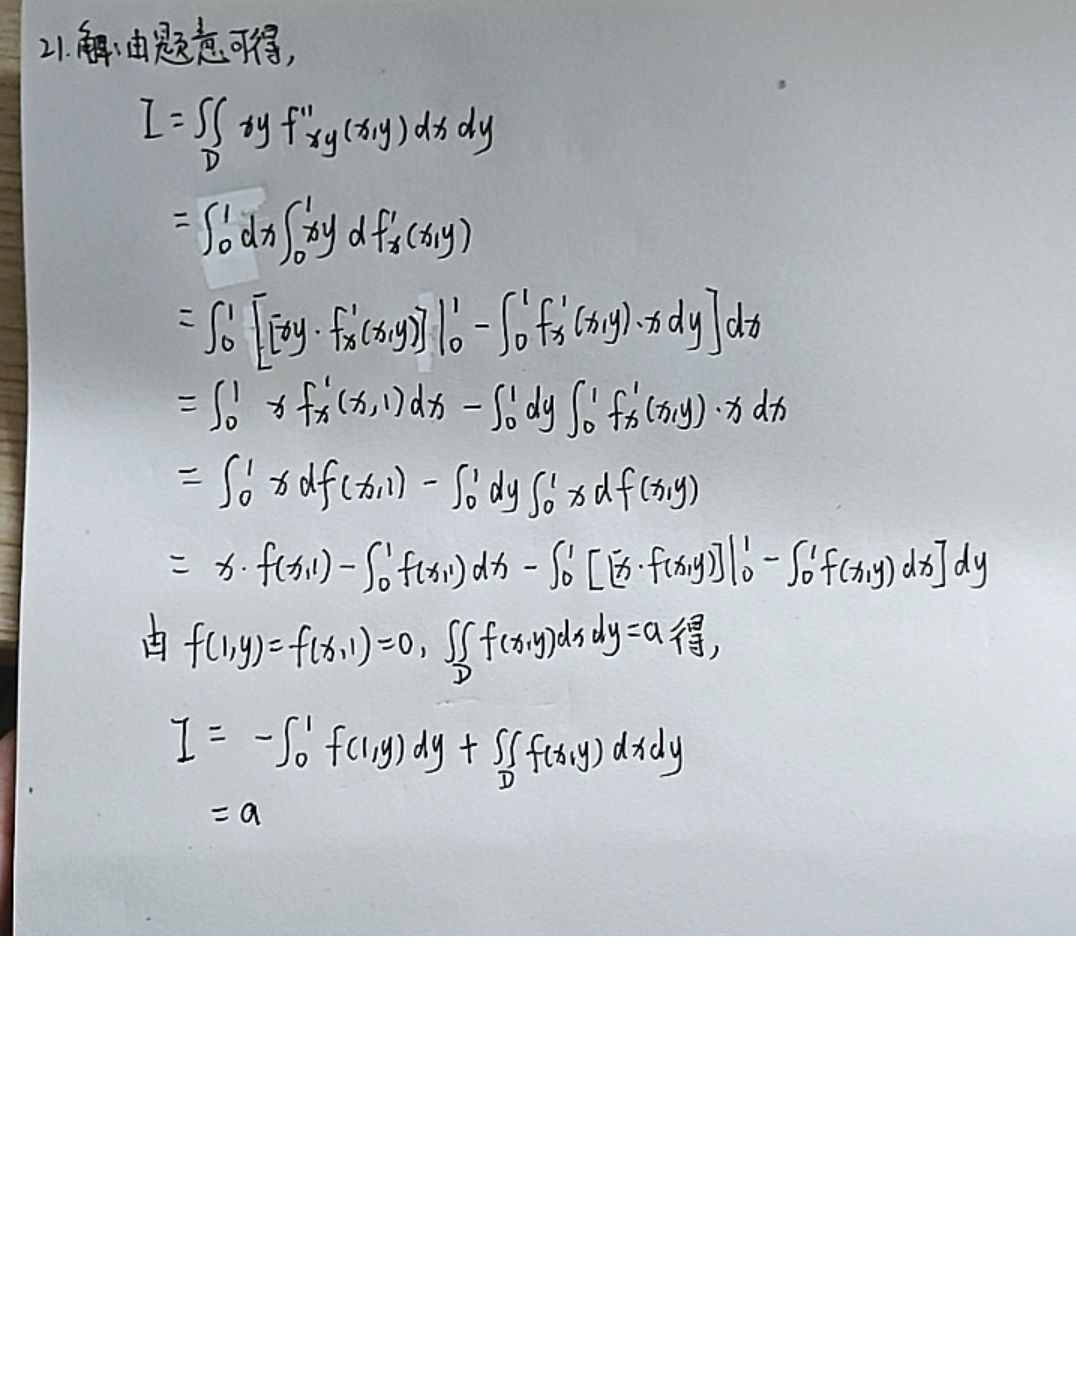 21.解:由题意可得,
I = ∬_D xy f''_{xy}(x,y) dx dy
= ∫_0^1 dx ∫_0^1 xy d f'_x(x,y)
= ∫_0^1 [[xy · f'_x(x,y)]|_0^1 - ∫_0^1 f'_x(x,y) · x dy] dx
= ∫_0^1 x f'_x(x,1) dx - ∫_0^1 dy ∫_0^1 f'_x(x,y) · x dx
= ∫_0^1 x d f(x,1) - ∫_0^1 dy ∫_0^1 x d f(x,y)
= x · f(x,1) - ∫_0^1 f(x,1) dx - ∫_0^1 [[x · f(x,y)]|_0^1 - ∫_0^1 f(x,y) dx] dy
由 f(1,y)=f(x,1)=0, ∬_D f(x,y)dx dy=a 得,
I = -∫_0^1 f(1,y) dy + ∬_D f(x,y) dx dy
= a